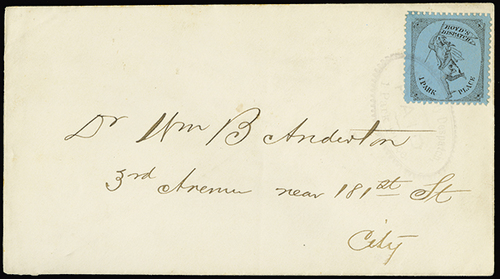 BOYD'S
DISPATCH
1 PARK PLACE
Dr Wm B Anderton
3rd Avenue near 181st St
City